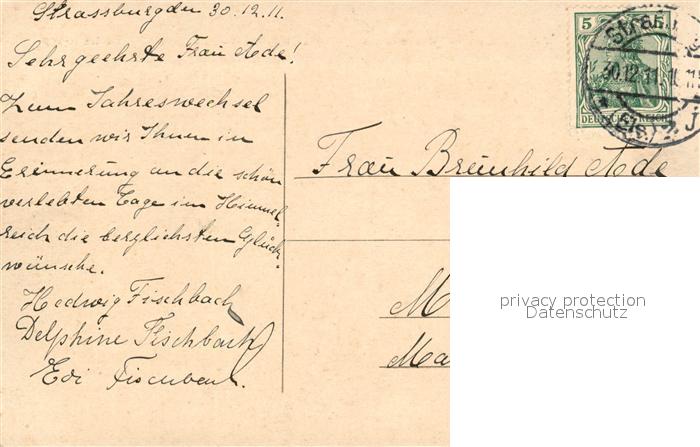 Strassburg den 30.12.11.
Sehrgeehrte Frau Ade!
Zum Jahreswechsel
senden wir Ihnen in
Erinnerung an die schön
verlebten Tage im Himmel-
reich die herzlichsten Glück-
wünsche.
Hedwig Fischbach
Delphine Fischbach
Edi Fischbach.
5
DEUTSCHES REICH
Straßb
30.12.11.
(Els.) 2. J
Frau Brünhild Ade
M
Ma
privacy protection
Datenschutz